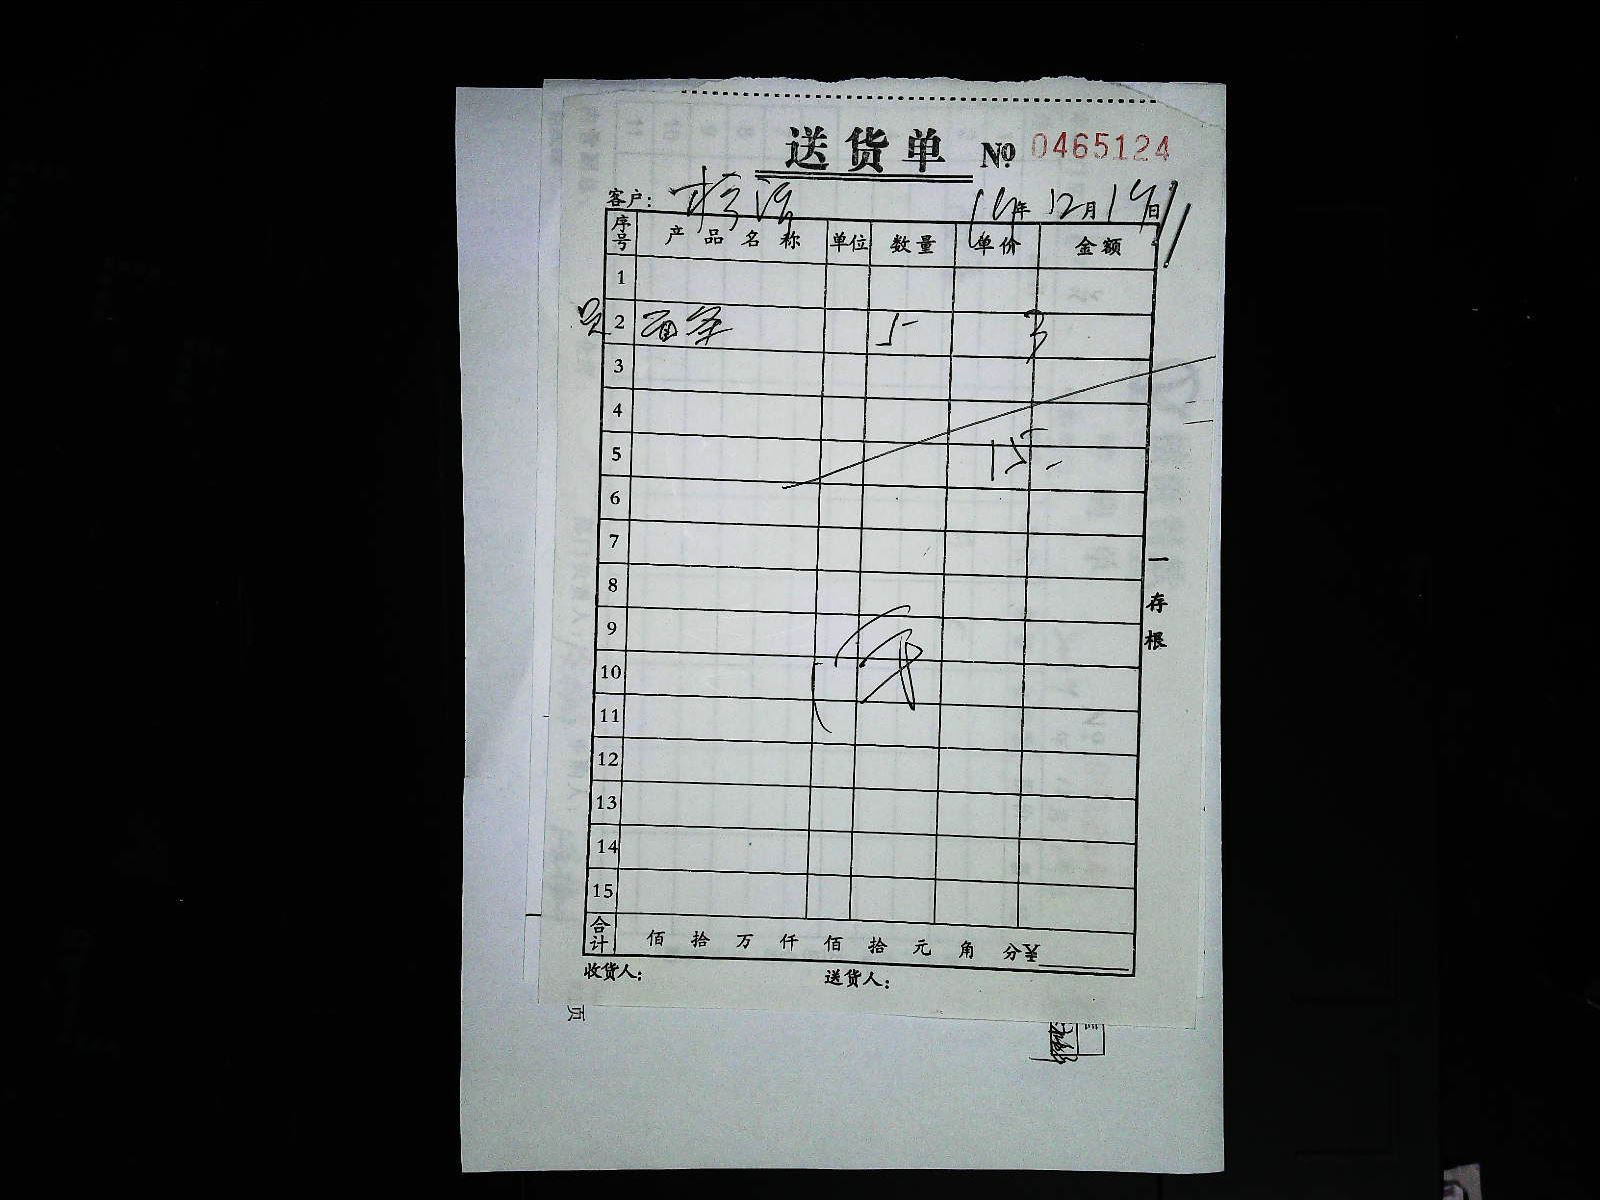 送货单 № 0465124
客户: 年 12月 日
序号 产品名称 单位 数量 单价 金额
1
2 面条 5 3
3
4
5 15-
6
7
8
9
10
11
12
13
14
15
合计 佰 拾 万 仟 佰 拾 元 角 分¥
收货人: 送货人:
一存根
页